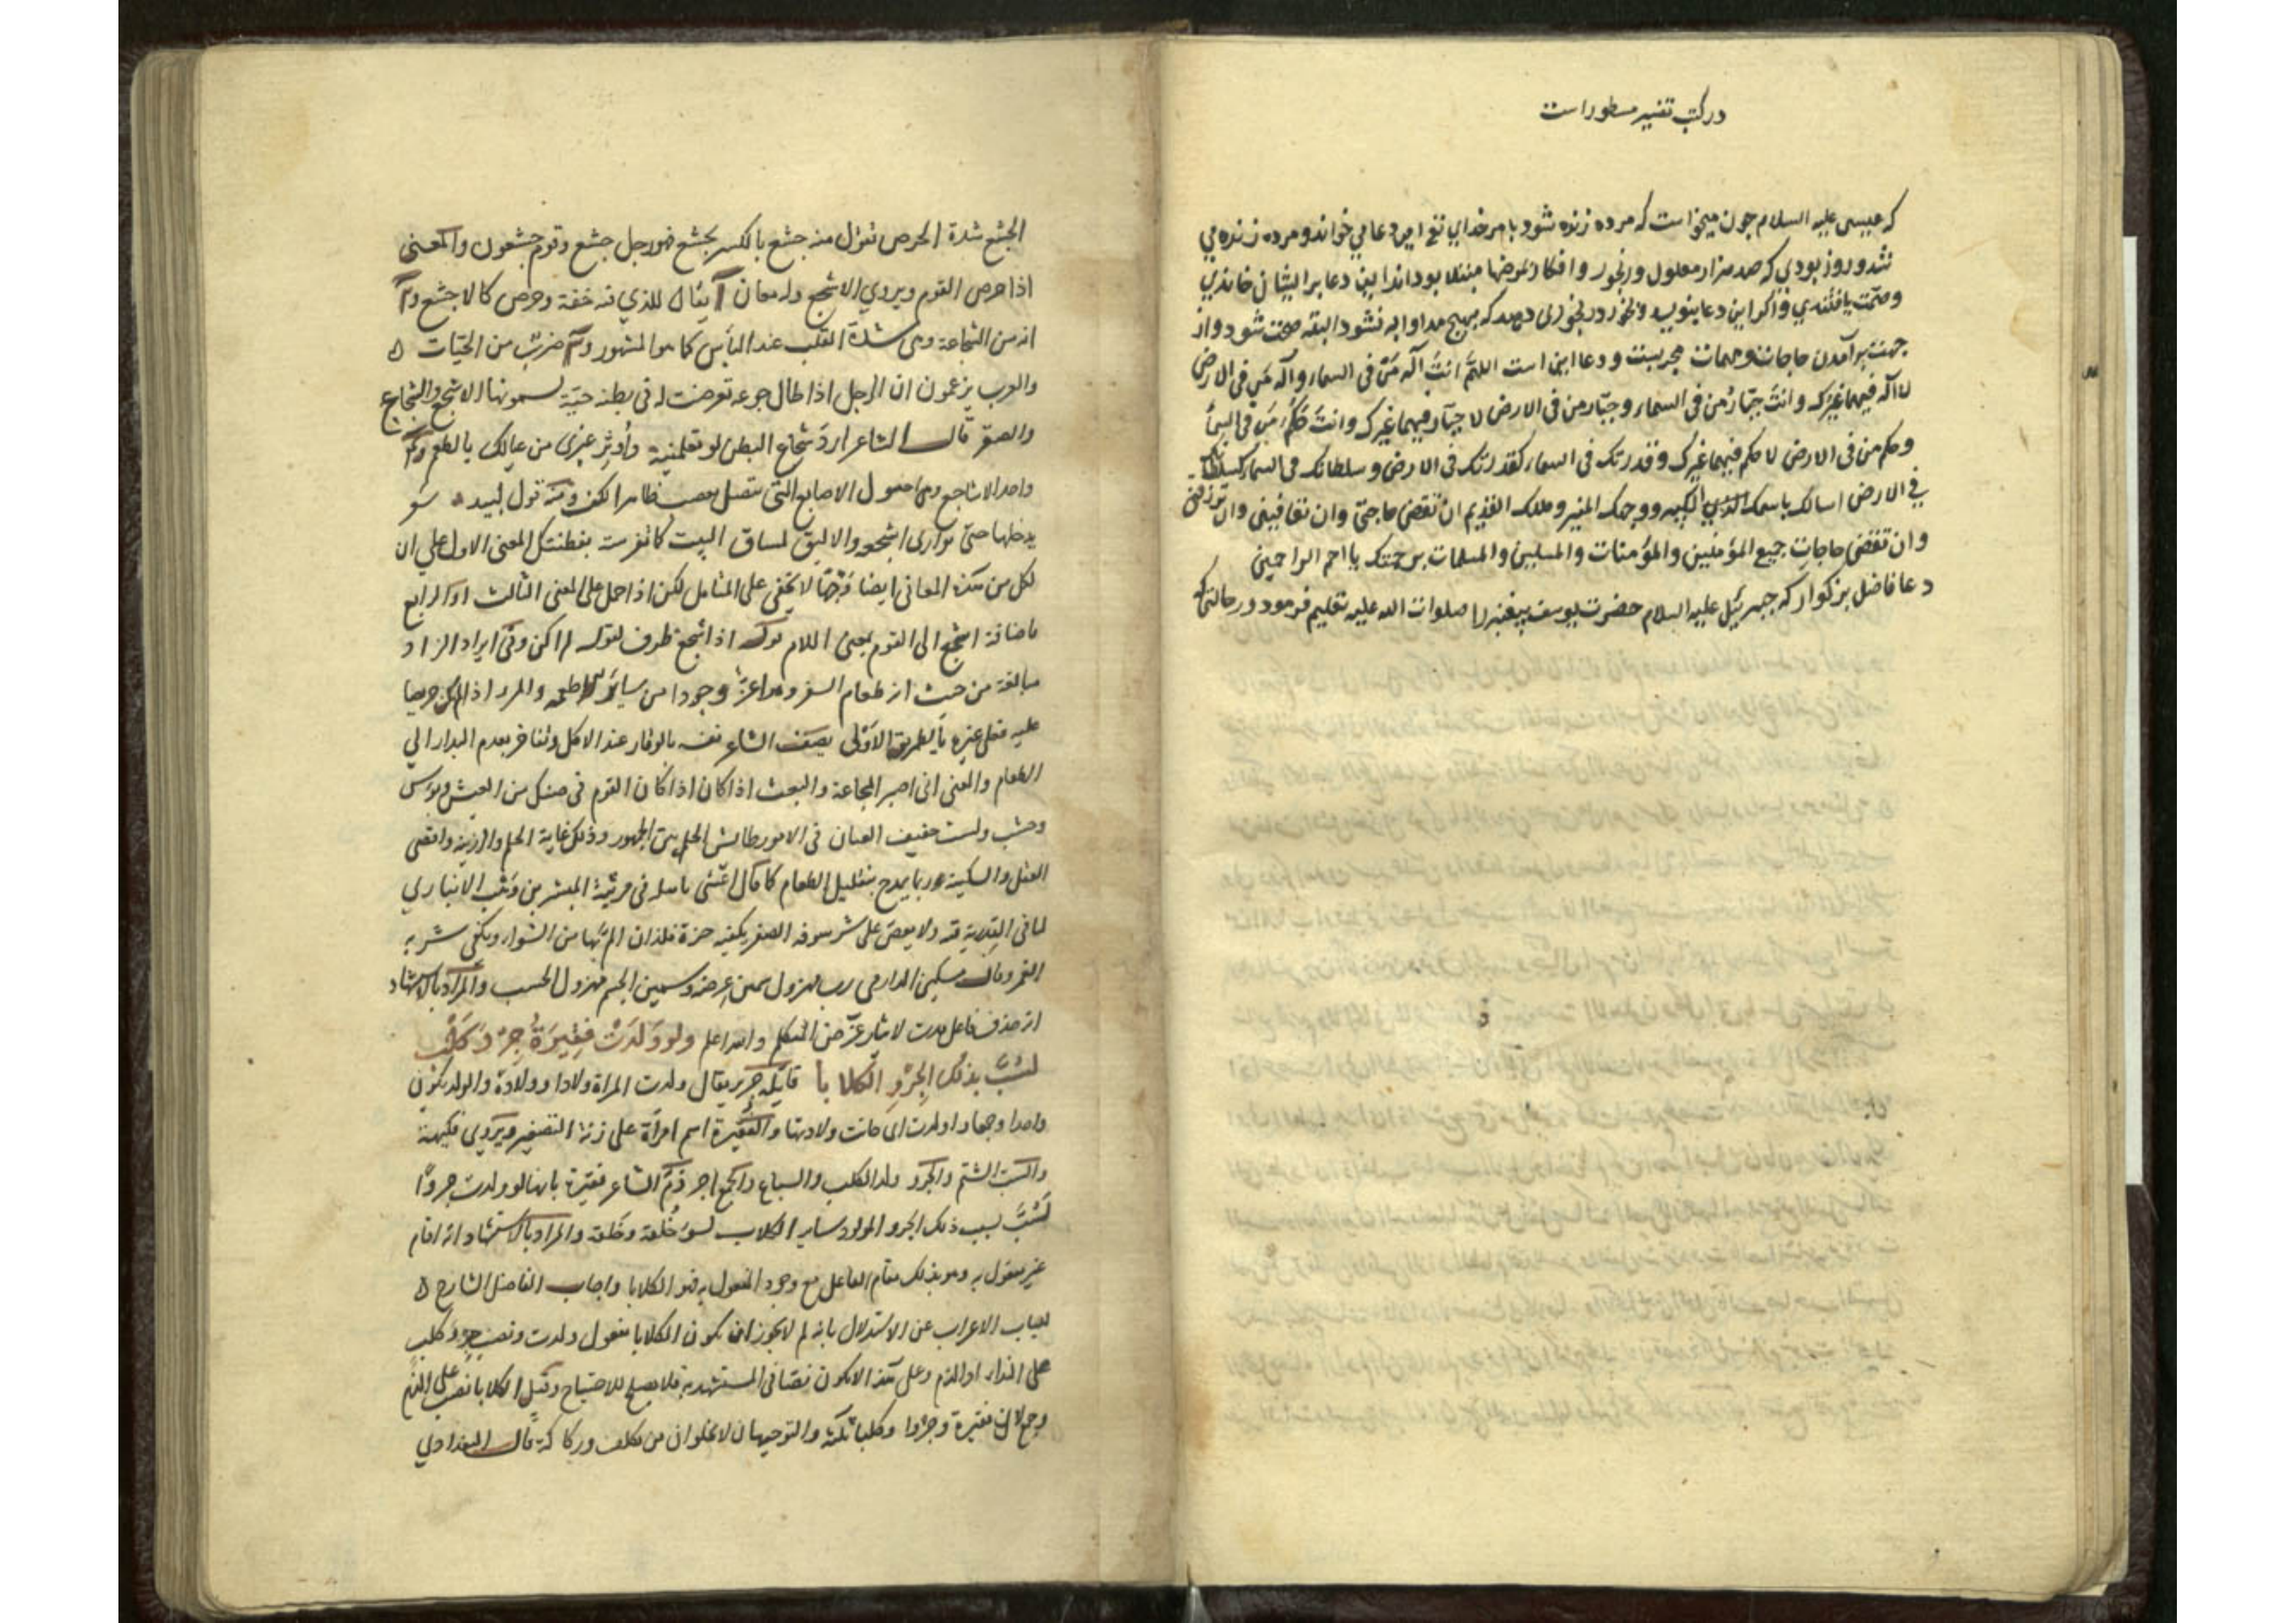 در کتب تفسیر مسطور است
که عیسی علیه السلام چون میخواست که مرده زنده شود بامر خدای تع این دعا می خواند و مرده زنده می
شد و روز بودی که صد هزار معلول و رنجور و افکار بمرضها مبتلا بود اند این دعا بر ایشان خاندی
وصحت یافتندی و اگر این دعا بنویسد و بخورد رنجوری دهد که بهیچ مداوا به نشود البته صحت شود و از
جهت برآمدن حاجات و مهمات مجربست و دعا این است اللهم انت آله من فی السماء و آله من فی الارض
لا اله فیهما غیرک وانت جبار من فی السماء وجبار من فی الارض لا جبار فیهما غیرک وانت حکم من فی السماء
وحکم من فی الارض لا حکم فیهما غیرک وقدرتک فی السماء کقدرتک فی الارض وسلطانک فی السماء کسلطانک
فی الارض اسالک باسمک الکبیر ووجهک المنیر وملکک القدیم ان تقضی حاجتی وان تعافینی وان ترزقنی
وان تقضی حاجات جمیع المؤمنین والمؤمنات والمسلمین والمسلمات برحمتک یا ارحم الراحمین
دعا فاضل بزکوار که جبرئیل علیه السلام حضرت یوسف پیغمبر را صلوات الله علیه تعلیم فرمود در حالتی که
الجشع شدة الحرص تقول منه جشع بالکسر یجشع فهو رجل جشع وقوم جشعون والمعنی
اذا حرص القوم ویروی الاشجع وله معان آ یقال للذی فیه خفة وحرص کالاجشع و
انه من الشجاعة وهی شدة القلب عند البأس کما هو المشهور و ضرب من الحیّات
والعرب یزعمون ان الرجل اذا طال جوعه تعرضت له فی بطنه حیّة یسمونها الاشجع والشجاع
والصفر قال الشاعر ارد شجاع البطن لو تعلمینه وأوثر غیری من عیالک بالطعم و
واحد الاشاجع وهی اصول الاصابع التی تتصل بعصب ظاهر الکف ومنه قول لبید
یدخلها حتی یواری اشجعه والالیق لمساق البیت کما تفرست بفطنتک المعنی الاول علی ان
لکل من هذه المعانی ایضا وجها لا یخفی علی المتامل لکن اذا حمل علی المعنی الثالث او الرابع
باضافة اشجع الی القوم بمعنی اللام قوله اذ اشجع ظرف لقوله لم اکن وفی ایراد الزاد
مبالغة من حیث انه طعام السفر وهو اعز وجودا من سایر الاطعمة والمرء اذا لم یکن حریصا
علیه فعلی غیره بالطریق الاولی یصف الشاعر نفسه بالوقار عند الاکل وتفاخر بعدم البدار الی
الطعام والمعنی انی اصبر المجاعة اذا کان القوم فی ضنک من العیش وبؤس
ولست خفیف العنان فی الامور طایش الحلم بین الجمهور وذلک غایة الحلم والرزانة واقصی
العقل والسکینة وربما یمدح بتقلیل الطعام کما قال اعشی باهله فی مرثیة المنتشر بن وهب
لما فی القدر یرقبه ولا یعض علی شرسوفه الصفر یکفیه حزة فلذان الم بها من الشواء ویکفی شربه
الغمر وقال مسکین الدارمی رب مهزول سمین عرضه وسمین الجسم مهزول الحسب والمراد بالاستشهاد
انه حذف فاعل مدت لایثار غرض المتکلم والله اعلم ولو ولدت فقیرة جرو کلب
لسب بذلک الجرو الکلابا قایله جریر یقال ولدت المراة ولادا وولادة والولد یکون
واحدا وجمعا واولدت ای حانت ولادتها والفقیرة اسم امراة علی زنة التصغیر ویروی فکیهة
والسب الشتم والجرو ولد الکلب والسباع والجمع اجر ذم الشاعر فقیرة بانها لو ولدت جروا
لسب بسبب ذلک الجرو المولود سایر الکلاب لسوء خلقه وخلقه والمراد بالاستشهاد انه اقام
غیر مفعول به وهو بذلک مقام الفاعل مع وجود المفعول به وهو الکلابا واجاب الفاضل الشارح
للباب الاعراب عن الاستدلال بانه لم لا یجوز ان یکون الکلابا مفعول ولدت ونصب جرو کلب
علی النداء او الذم وعلی هذا لا یکون نصا فی المستشهد به فلا یصلح للاحتجاج وقیل الکلابا نصب علی الذم
وجمع لان فقیرة وجروا وکلبا ثلثة والتوجیهان لا یخلوان من تکلف ورکاکة قال البغدادی